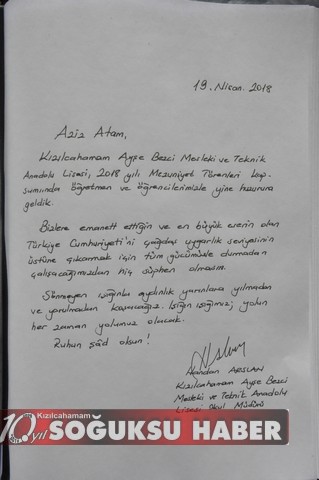 19. Nisan. 2018
Aziz Atam,
Kızılcahamam Ayşe Bezci Mesleki ve Teknik
Anadolu Lisesi, 2018 yılı Mezuniyet Törenleri kap-
sumında öğretmen ve öğrencilerimizle yine huzuruna
geldik.
Bizlere emanet ettiğin ve en büyük eserin olan
Türkiye Cumhuriyeti'ni çağdaş uygarlık seviyesinin
üstüne çıkarmak için tüm gücümüzle durmadan
çalışacağımızdan hiç şüphen olmasın.
Sönmeyen ışığınla aydınlık yarınlara yılmadan
ve yorulmadan koşacağız. Işığın ışığımız; yolun
her zaman yolumuz olacak.
Ruhun şâd olsun!
Handan ARSLAN
Kızılcahamam Ayşe Bezci
Mesleki ve Teknik Anadolu
Lisesi Okul Müdürü
10. yıl Kızılcahamam
SOĞUKSU HABER